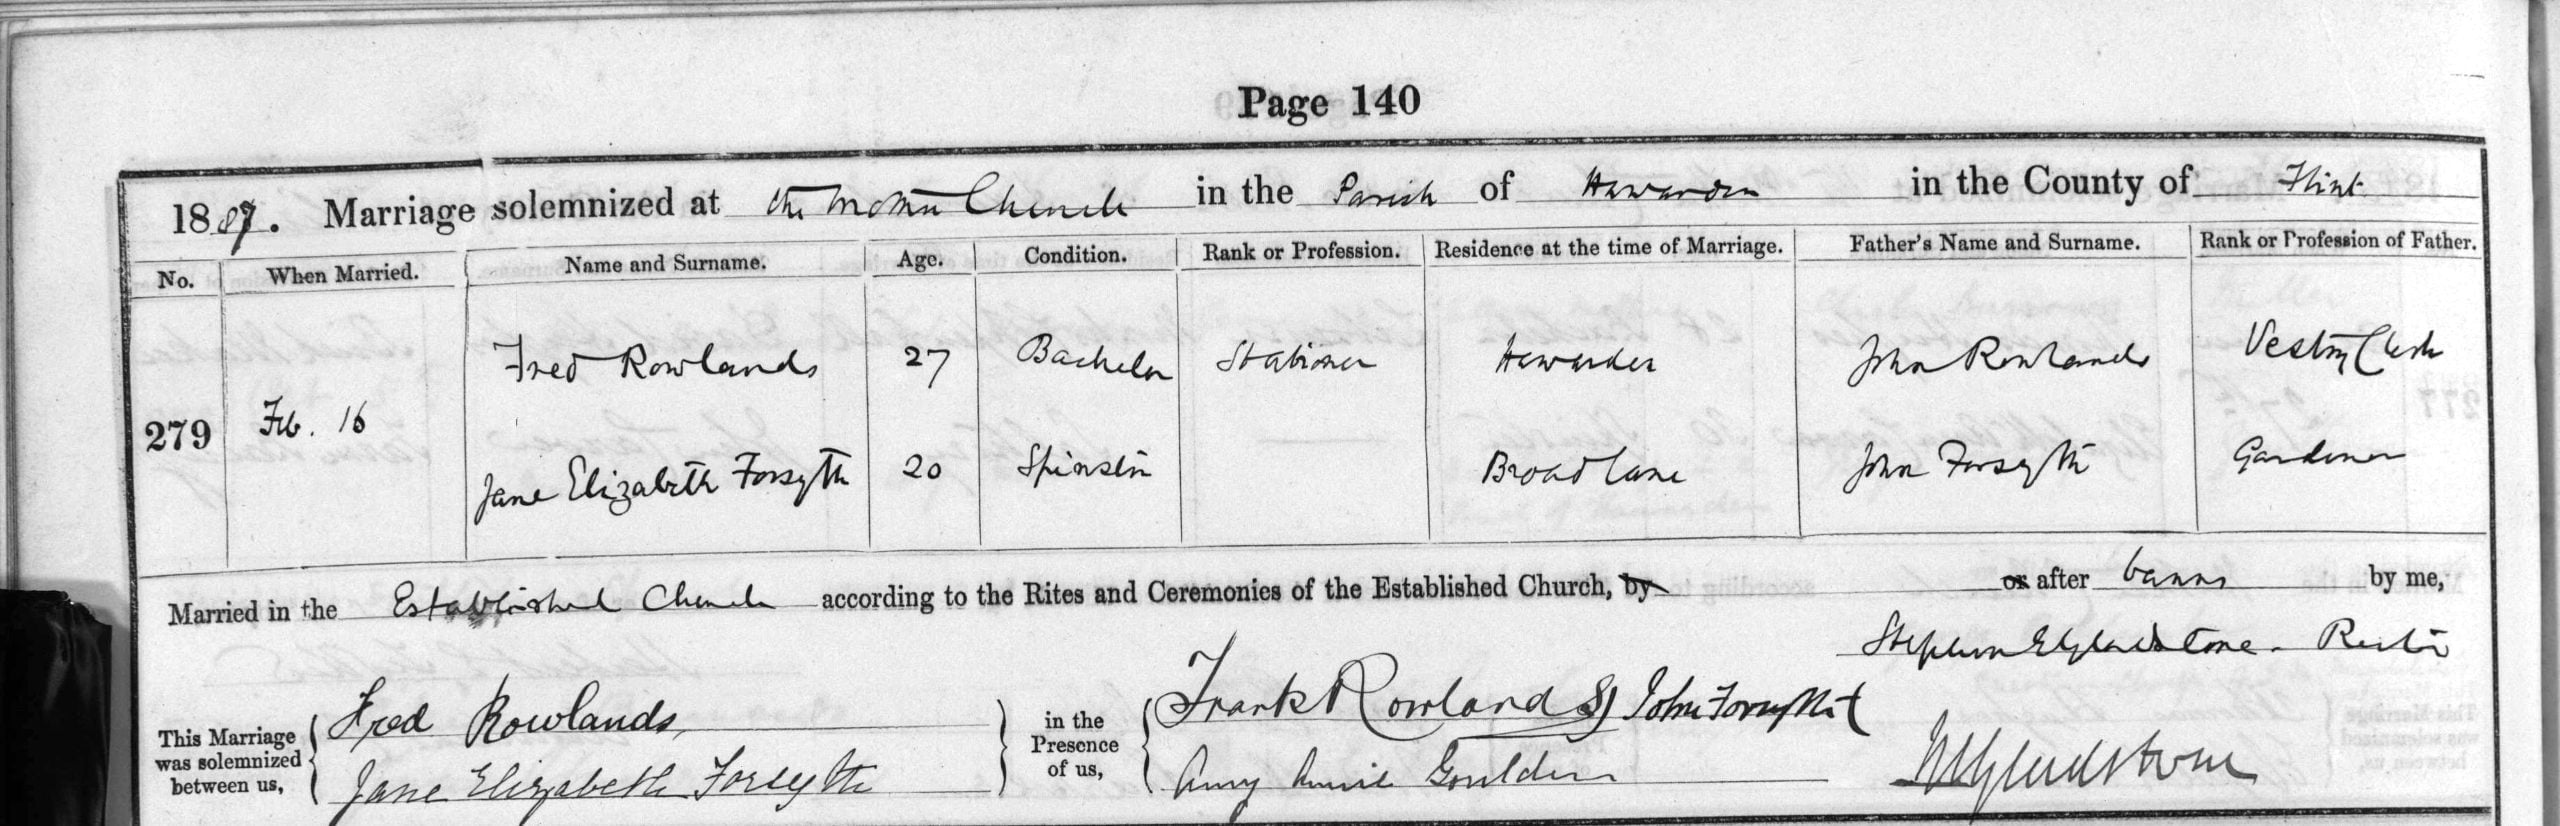 Page 140
1887. Marriage solemnized at the Mother Church in the Parish of Hawarden in the County of Flint
No. When Married. Name and Surname. Age. Condition. Rank or Profession. Residence at the time of Marriage. Father's Name and Surname. Rank or Profession of Father.
Fred Rowlands 27 Bachelor Stationer Hawarden John Rowlands Vestry Clerk
279 Feb. 16
Jane Elizabeth Forsyth 20 Spinster Broad lane John Forsyth Gardener
Married in the Established Church according to the Rites and Ceremonies of the Established Church, by or after banns by me,
Stephen E Gladstone - Rector
This Marriage was solemnized between us, Fred Rowlands, in the Presence of us, Frank Rowlands John Forsyth
Jane Elizabeth Forsyth Amy Annie Goulden WEGladstone